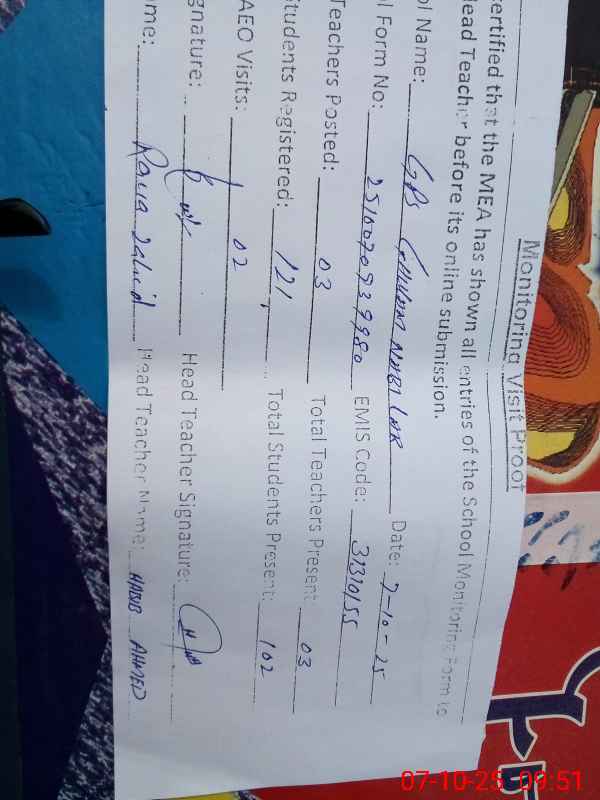 Monitoring Visit Proof
ertified that the MEA has shown all entries of the School Monitoring Form to
Head Teacher before its online submission.
ol Name: GPS NABI Date: 7-10-25
l Form No: 2510070939980 EMIS Code: 31310155
Teachers Posted: 03 Total Teachers Present 03
Students Registered: 121 Total Students Present: 102
AEO Visits: 02
gnature: Head Teacher Signature:
me: Rana Zahid Head Teacher Name: HABIB AHMED
07-10-25 09:51